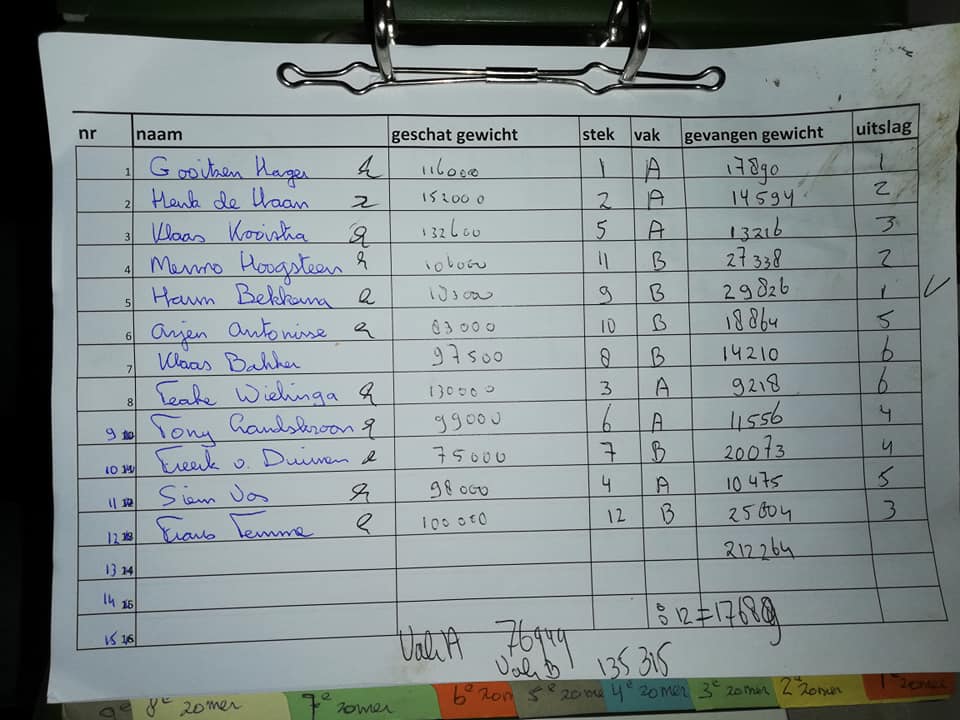 nr naam geschat gewicht stek vak gevangen gewicht uitslag
1 Gooitzen Hager 116000 1 A 17890 1
2 Henk de Haan 152000 2 A 14594 2
3 Klaas Kooistra 132600 5 A 13216 3
4 Menno Hoogsteen 106000 11 B 27338 2
5 Harm Bekkema 9 B 29826 1
6 Arjen Antonisse 83000 10 B 18864 5
7 Klaas Bakker 97500 8 B 14210 6
8 Teake Wiehinga 130000 3 A 9218 6
9 Tony 99000 6 A 11556 4
10 Freerk v. Duinen 75000 7 B 20073 4
11 Siem Vos 98000 4 A 10475 5
12 Frans Temme 100000 12 B 25004 3
13 212264
14 : 12 = 17688g
15
Vak A 76949
Vak B 135315
9e 8e zomer 7e zomer 6e zom 5e zomer 4e zomer 3e zomer 2e zomer 1e zomer